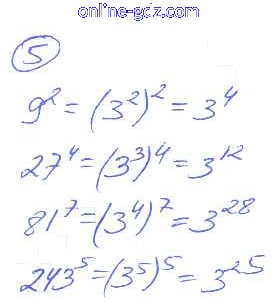 online-gdz.com
5
9² = (3²)² = 3⁴
27⁴ = (3³)⁴ = 3¹²
81⁷ = (3⁴)⁷ = 3²⁸
243⁵ = (3⁵)⁵ = 3²⁵